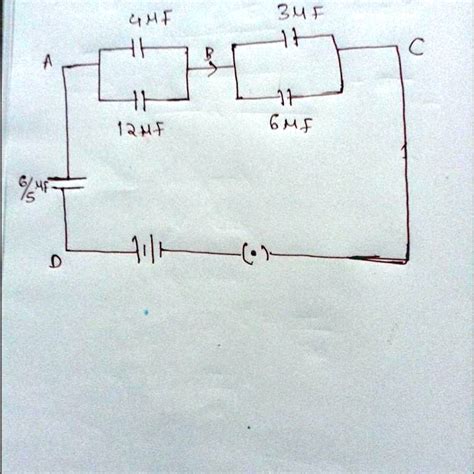 4MF
3MF
A
B
C
12MF
6MF
6/5 MF
D